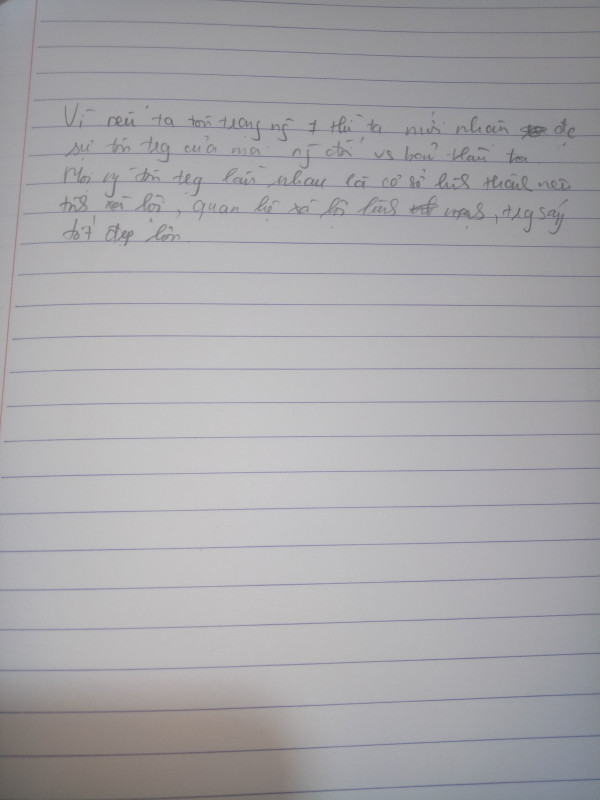 Vì nếu ta tôn trọng ng ≠ thì ta mới nhận đc
sự tôn trg của mọi ng đối vs bản thân ta
Mọi ng tôn trg lẫn nhau là cơ sở hình thành nên
xã hội, quan hệ xã hội lành mạnh,
tốt đẹp hơn